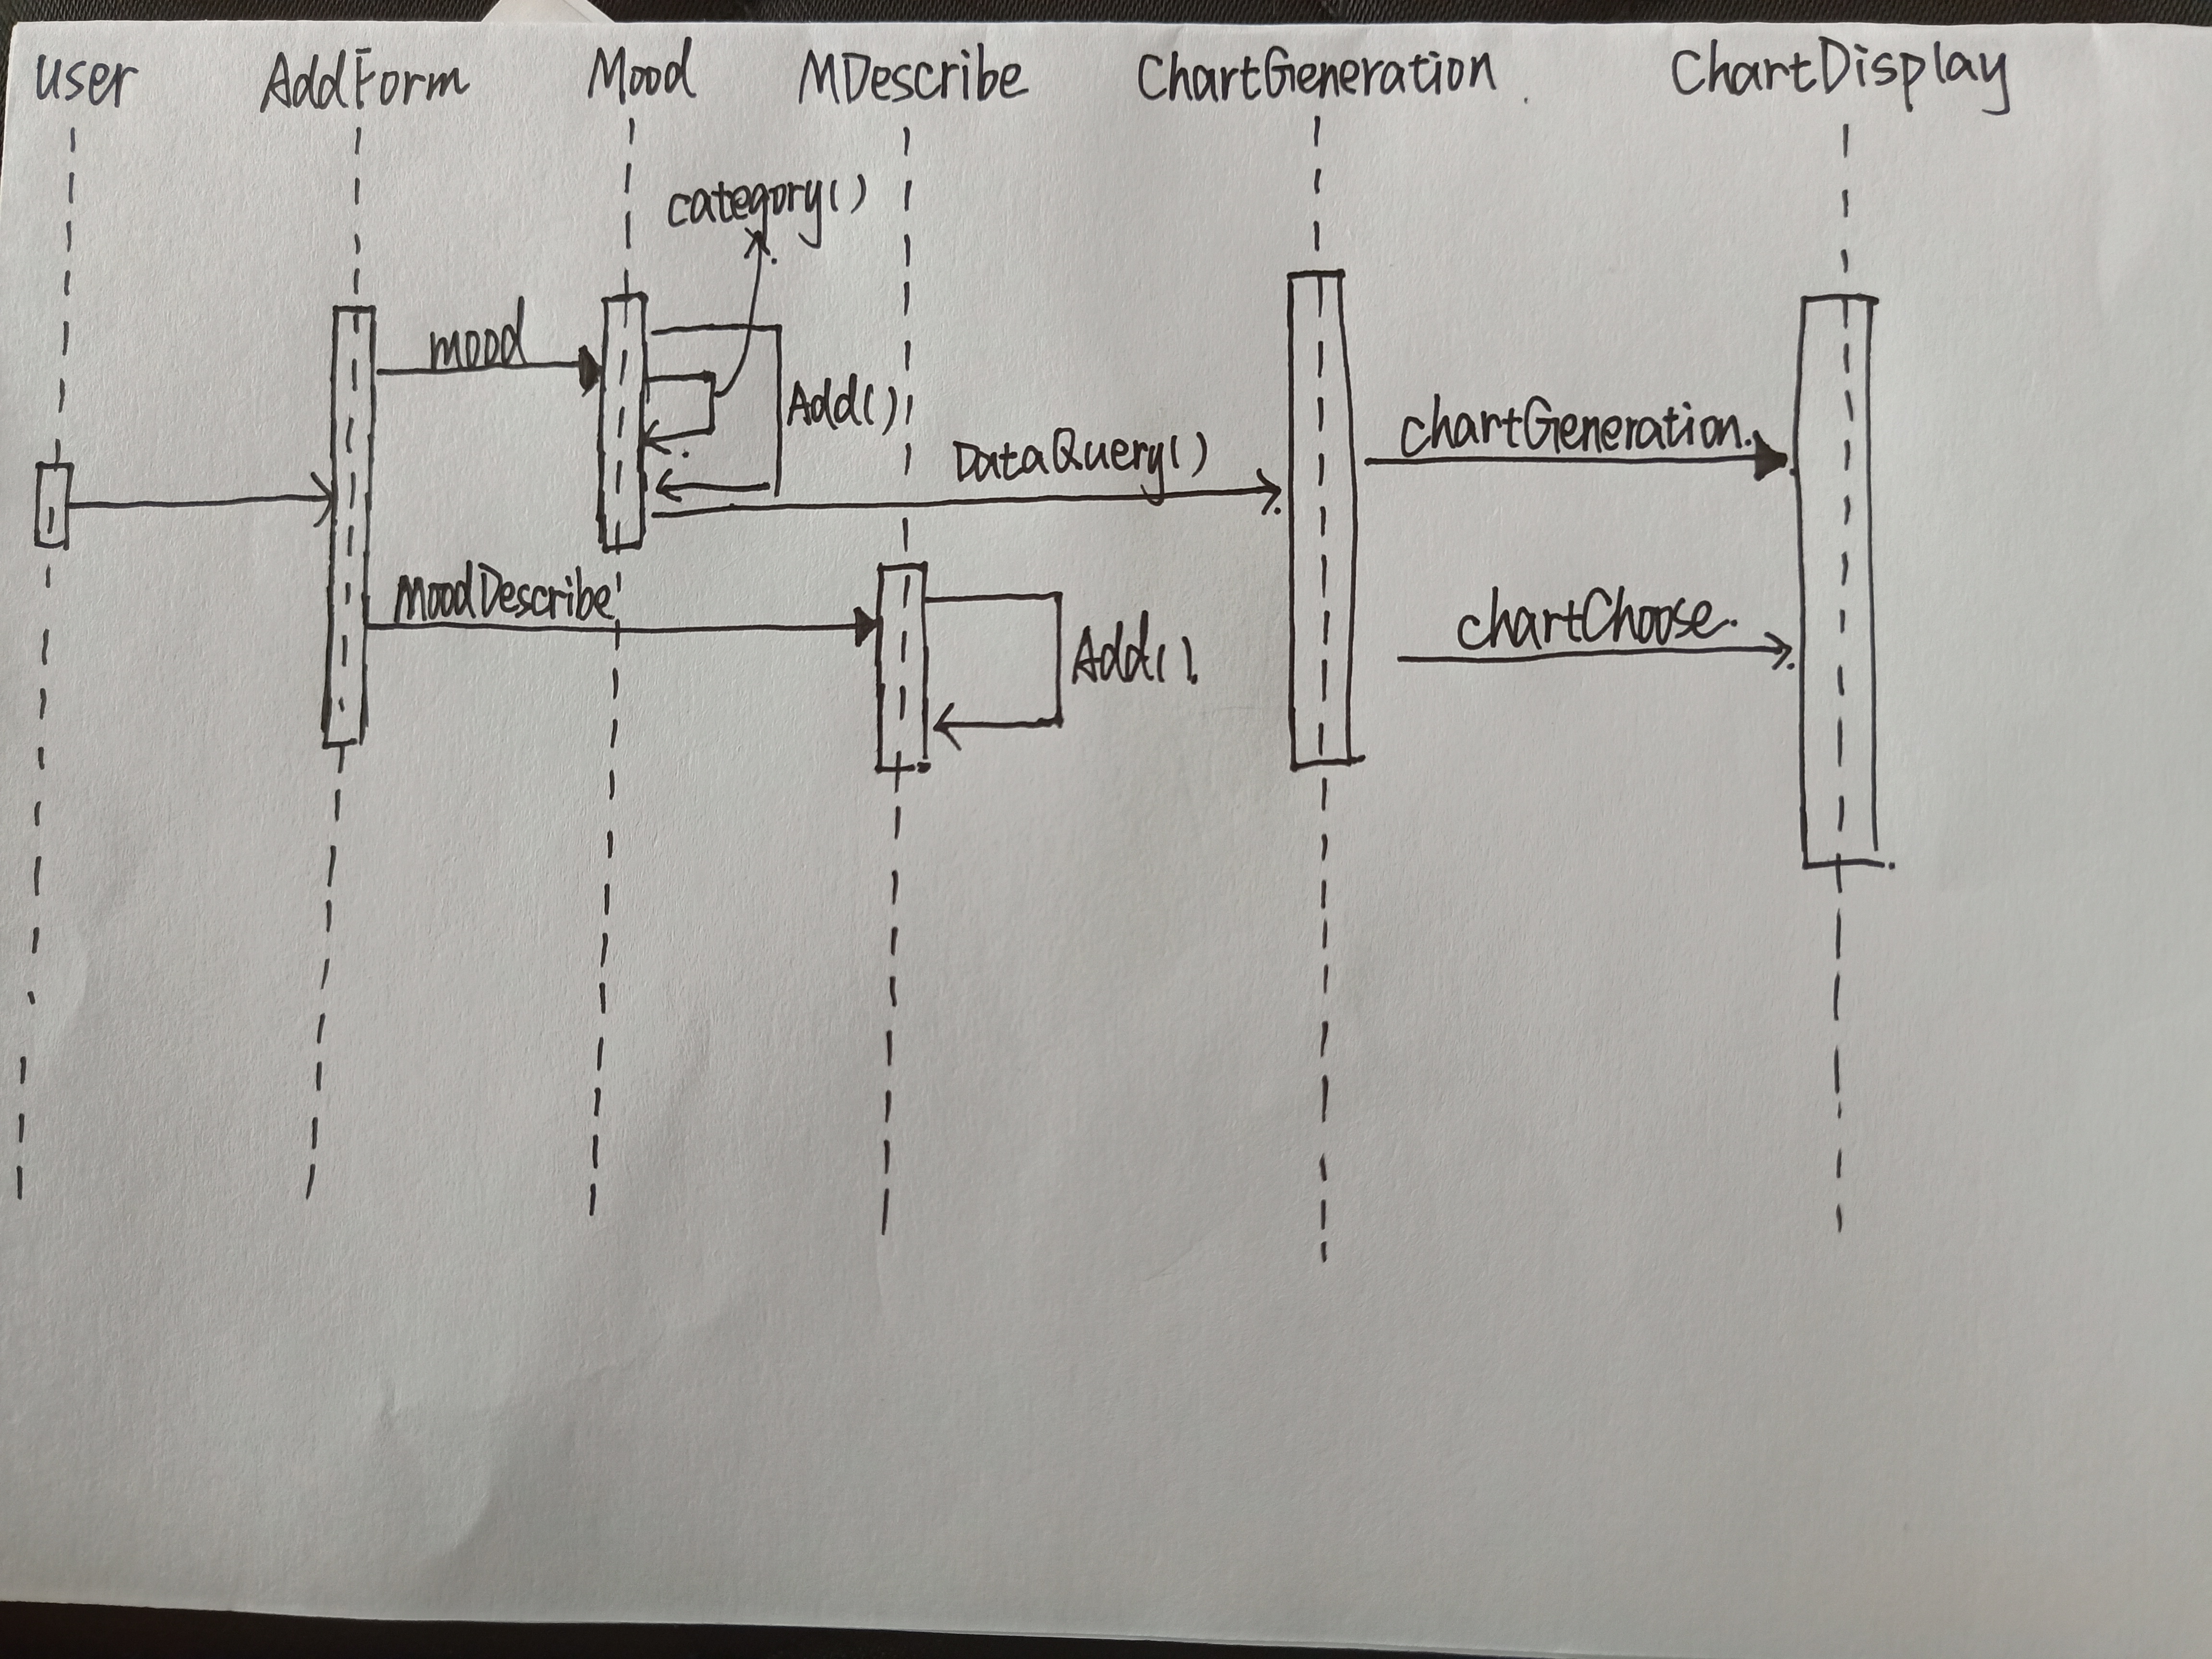 user AddForm Mood MDescribe ChartGeneration ChartDisplay
category()
mood
Add()
DataQuery()
chartGeneration.
moodDescribe
chartChoose.
Add()